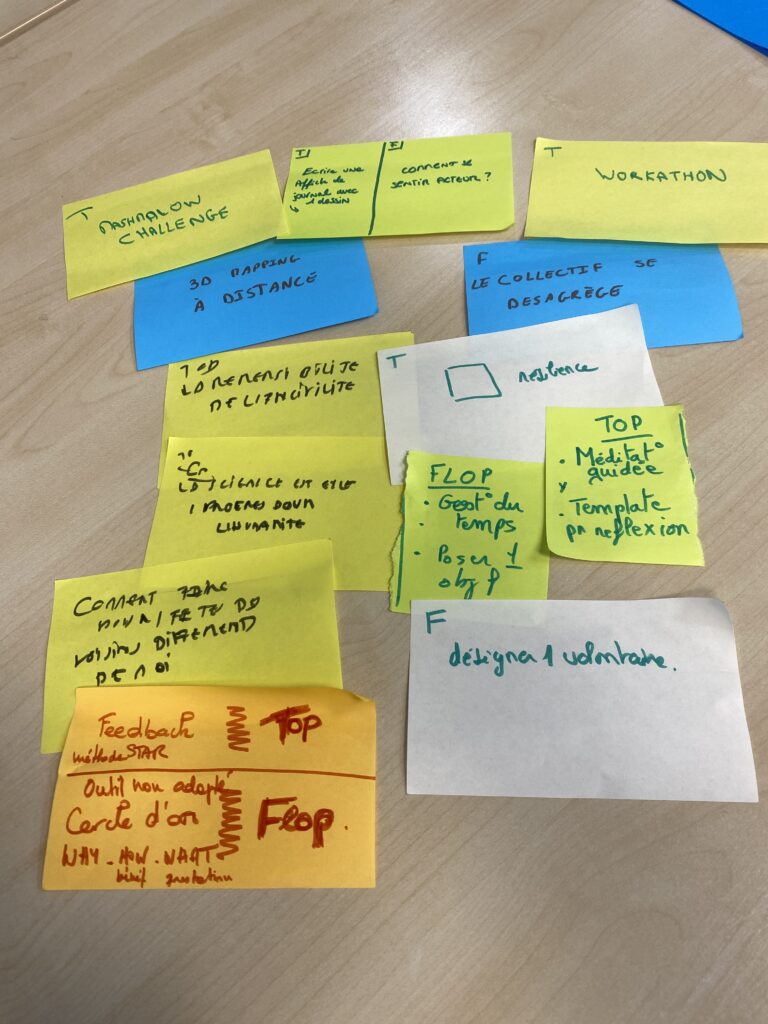 T
MASHMALOW
CHALLENGE
T
Ecrire une
Affich de
journal avec
1 dessin
F
COMMENT SE
SENTIR ACTEUR ?
T
WORKATHON
3D MAPPING
À DISTANCE
F
LE COLLECTIF SE
DESAGRÈGE
LA
DE L'INCIVILITE
LA SCIENCE EST ELLE
1 PROGRES POUR
L'HUMANITE
T
résilience
TOP
• Méditat°
guidée
• Template
pr reflexion
FLOP
• Gest° du
temps
• Poser 1
obj P
COMMENT FAIRE
POUR 1 FETE DE
VOISINS DIFFERENTS
DE MOI
F
désigner 1 volontaire.
Feedback
méthode STAR
Top
Outil non adapté
Cercle d'or
WHY - HOW - WHAT
Flop.